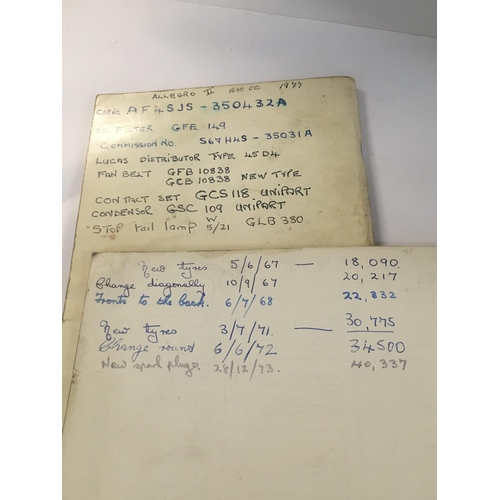 ALLEGRO II 1977
CAR No AF4SJS - 350432A
OIL FILTER GFE 149
COMMISSION NO. S67H4S - 35031A
LUCAS DISTRIBUTOR TYPE 45D4
FAN BELT GFB 10838
GCB 10838 NEW TYPE
CONTACT SET GCS118 UNIPART
CONDENSOR GSC 109 UNIPART
STOP tail lamp W 5/21 GLB 380
New tyres 5/6/67 — 18,090.
Change diagonally 10/9/67 20,217
Fronts to the back. 6/7/68 22,832
New tyres 3/7/71. — 30,775
Change round 6/6/72 34500
New spark plugs. 28/12/73. 40,337